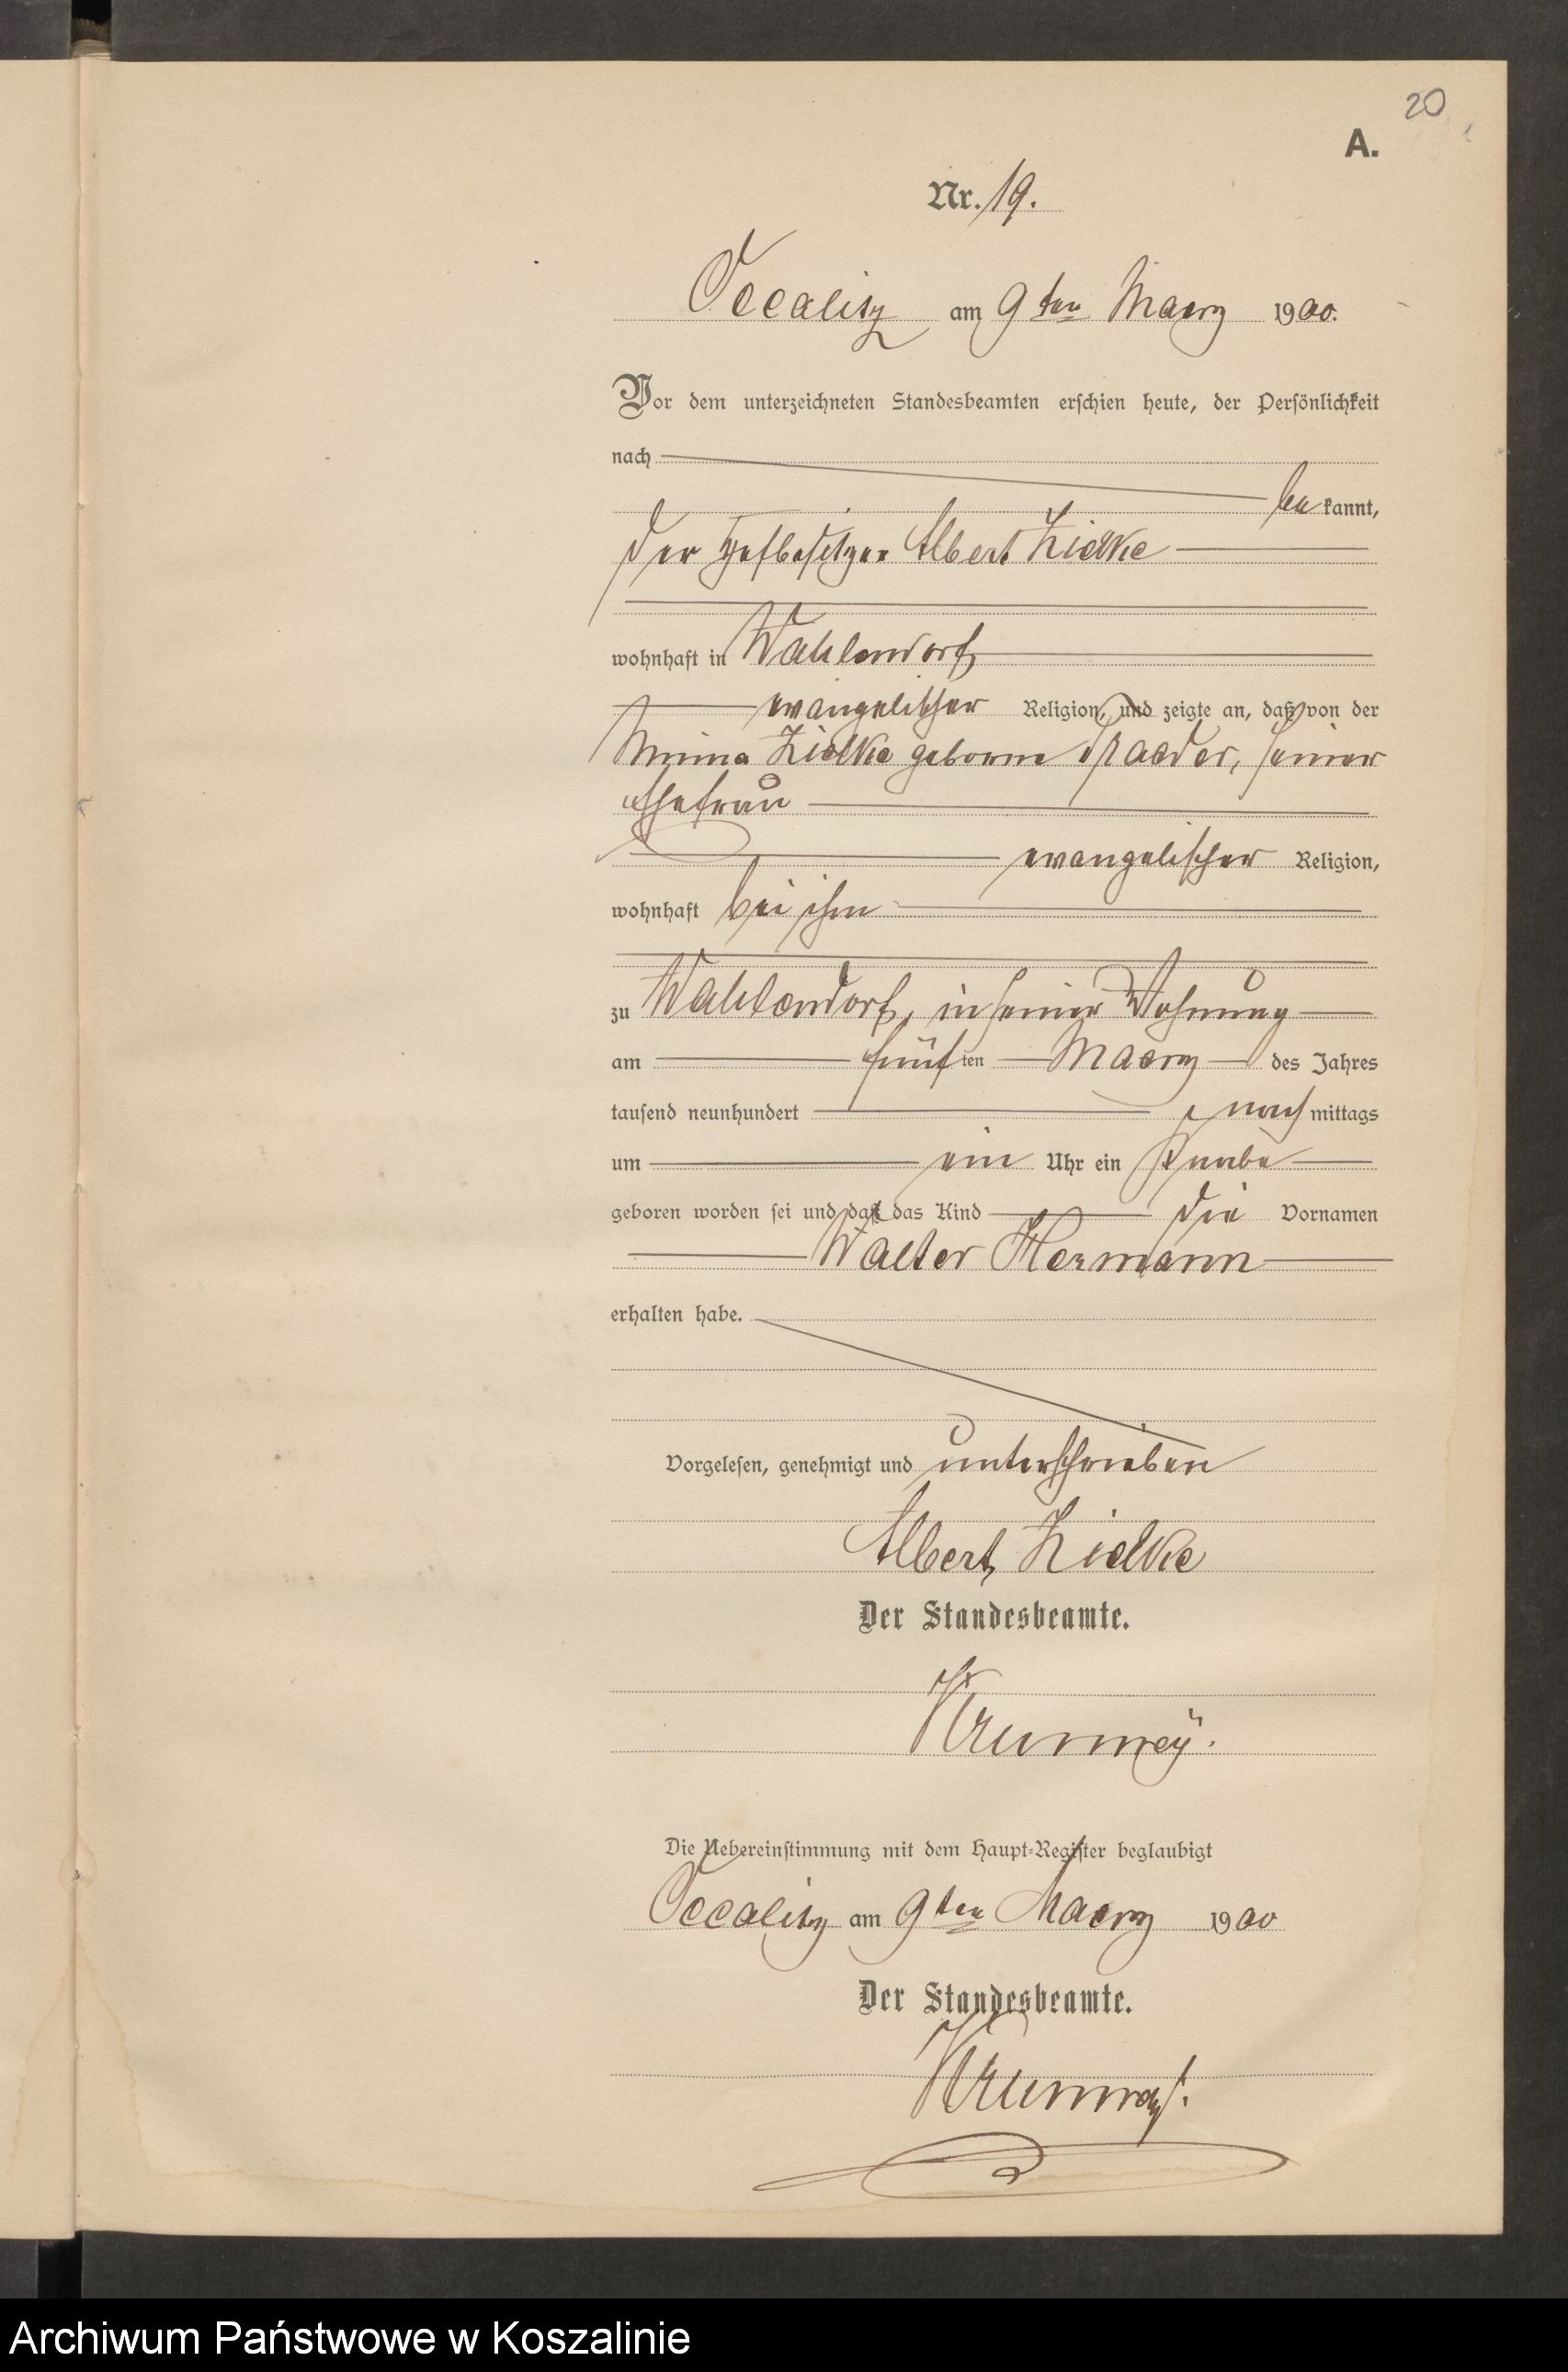 20
A.
Nr. 19.
Occalitz am 9ten Maerz 1900.
Vor dem unterzeichneten Standesbeamten erschien heute, der Persönlichkeit
nach
bekannt,
der Hofbesitzer Albert Zielke
wohnhaft in Wahlendorf
evangelischer Religion, und zeigte an, daß von der
Minna Zielke geborne Draeder, seiner
Ehefrau
evangelischer Religion,
wohnhaft bei ihm
zu Wahlendorf, in seiner Wohnung
am fünften Maerz des Jahres
tausend neunhundert nachmittags
um ein Uhr ein Knabe
geboren worden sei und daß das Kind die Vornamen
Walter Hermann
erhalten habe.
Vorgelesen, genehmigt und unterschrieben
Albert Zielke
Der Standesbeamte.
Krummeÿ.
Die Uebereinstimmung mit dem Haupt-Register beglaubigt
Occalitz am 9ten Maerz 1900
Der Standesbeamte.
Archiwum Państwowe w Koszalinie